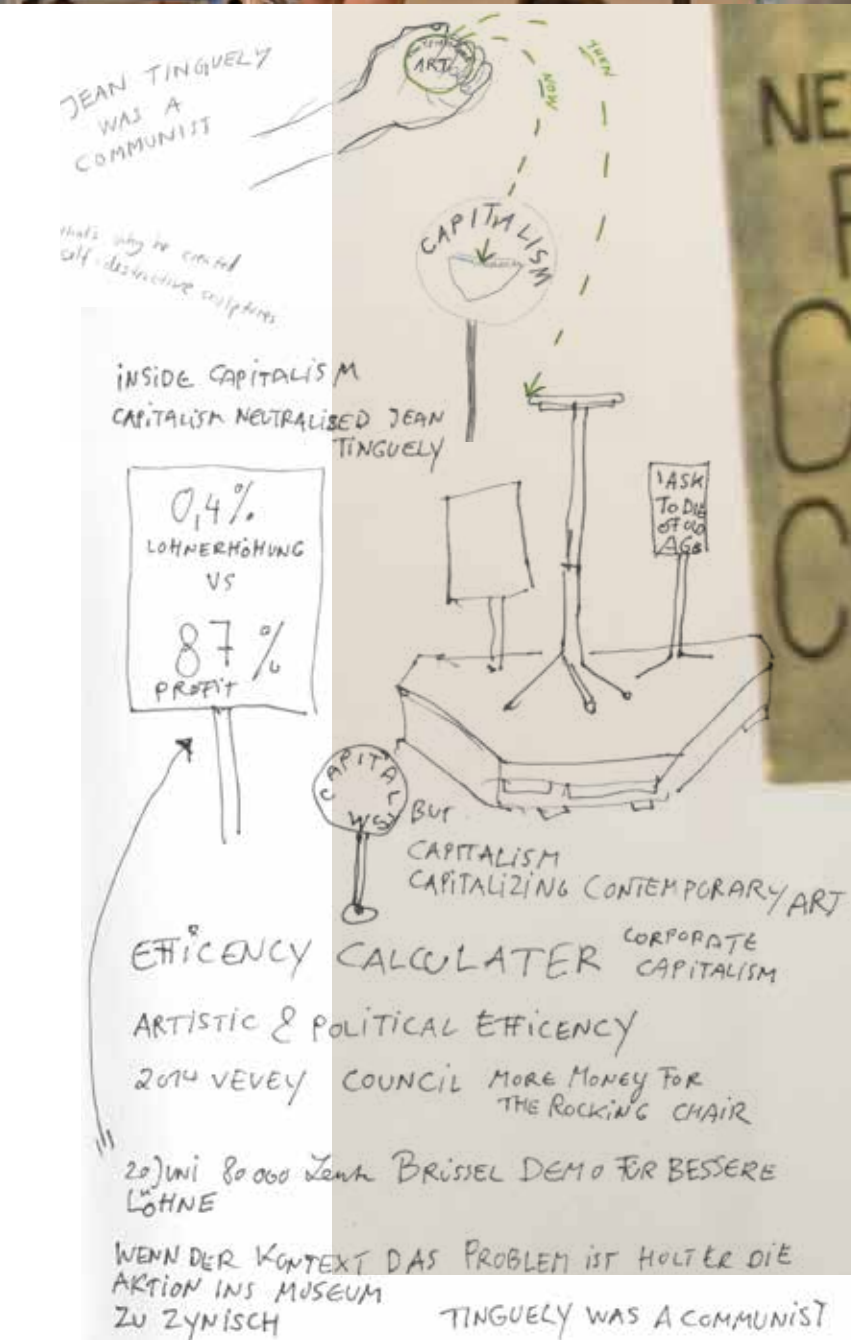 JEAN TINGUELY
WAS A
COMMUNIST
that's why he created
self-destructive sculptures
ART
NOW
THEN
CAPITALISM
INSIDE CAPITALISM
CAPITALISM NEUTRALISED JEAN
TINGUELY
0,4%
LOHNERHÖHUNG
VS
87%
PROFIT
I ASK
TO DIE
OF OLD
AGE
CAPITALISM
BUT
CAPITALISM
CAPITALIZING CONTEMPORARY ART
EFFICENCY CALCULATER CORPORATE
CAPITALISM
ARTISTIC & POLITICAL EFFICENCY
2014 VEVEY COUNCIL MORE MONEY FOR
THE ROCKING CHAIR
20 JUNI 80 000 Leute BRÜSSEL DEMO FÜR BESSERE
LÖHNE
WENN DER KONTEXT DAS PROBLEM IST HOLT ER DIE
AKTION INS MUSEUM
ZU ZYNISCH
TINGUELY WAS A COMMUNIST
NE
C
C